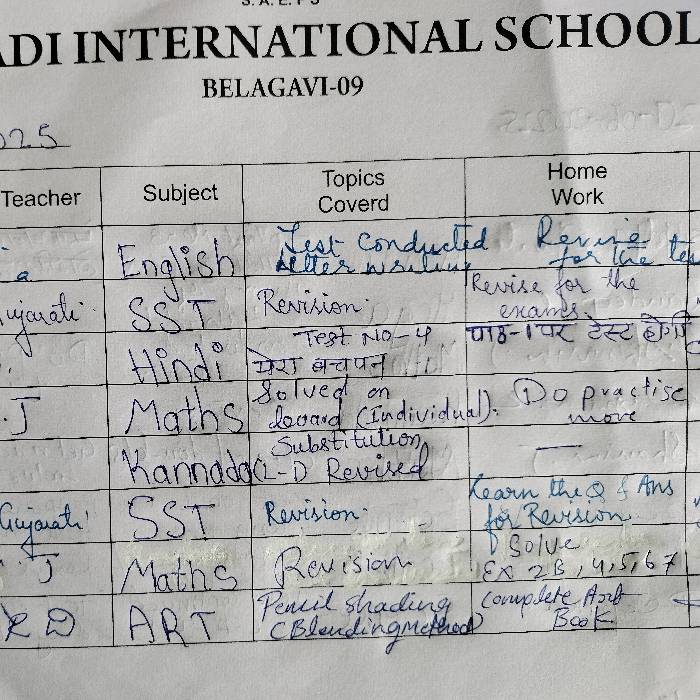 S. A. E. F'S
ADI INTERNATIONAL SCHOOL
BELAGAVI-09
025
Teacher Subject Topics Coverd Home Work
a English Test Conducted letter writing Revise for the tes
ujarati SST Revision. Revise for the exams.
Hindi Test No-4 मेरा बचपन पाठ-1 पर टेस्ट होगी
.J Maths Solved on board (Individual). Do practise more
Kannada Substitution (L-1) Revised —
Gujarati SST Revision. Learn the Q & Ans for Revision
.J Maths Revision Solve Ex 2B, 4,5,6,7
RD ART Pencil Shading (Blending Method) Complete Art Book